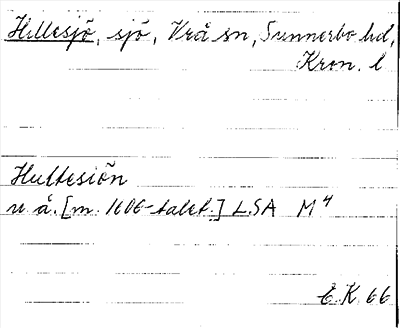 Hillesjö, sjö, Vrå sn, Sunnerbo hd,
Kron. l
Hultesiön
u å. [m. 1600-talet.] LSA M⁴
E.K. 66